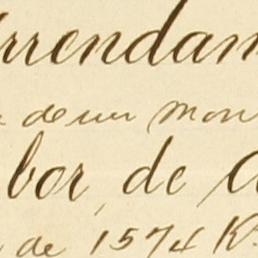 Arrendam
de un mon
bor, de
de 1574 K